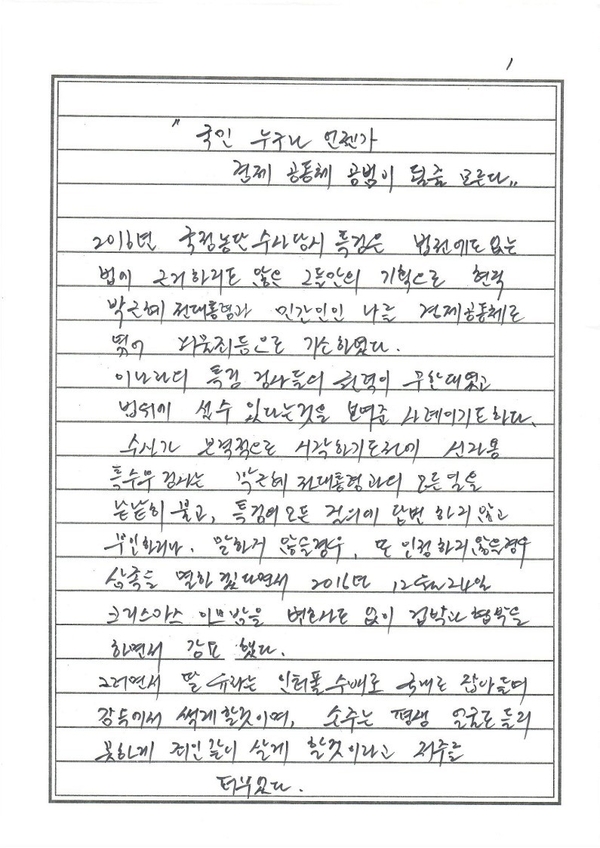 1
" 국민 누구나 언젠가
경제 공동체 공범이 될줄 모른다"
2016년 국정농단 수사당시 특검은 법전에도 없는
법에 근거하지도 않은 그들만의 기획으로 현직
박근혜 전대통령과 민간인인 나를 경제공동체로
엮어 뇌물죄등으로 기소하였다.
이나라의 특검 검사들의 권력이 무한대였고
법위에 설수 있다는것을 보여준 사례이기도하다.
수사가 본격적으로 시작하기도전에 신자용
특수부 검사는 박근혜 전대통령과의 모든일을
낱낱히 불고, 특검의 모든 질의에 답변 하지않고
부인하거나, 말하지 않을경우, 또 인정하지않을경우
삼족을 멸한다면서 2016년 12월24일
크리스마스 이브밤을 변호사도 없이 겁박과 협박을
하면서 강요 했다.
그러면서 딸 유라는 인터폴 수배로 국내로 잡아들여
감옥에서 썩게할것이며, 손주는 평생 얼굴도 들지
못하게 죄인같이 살게 할것이라고 저주를
퍼부었다.